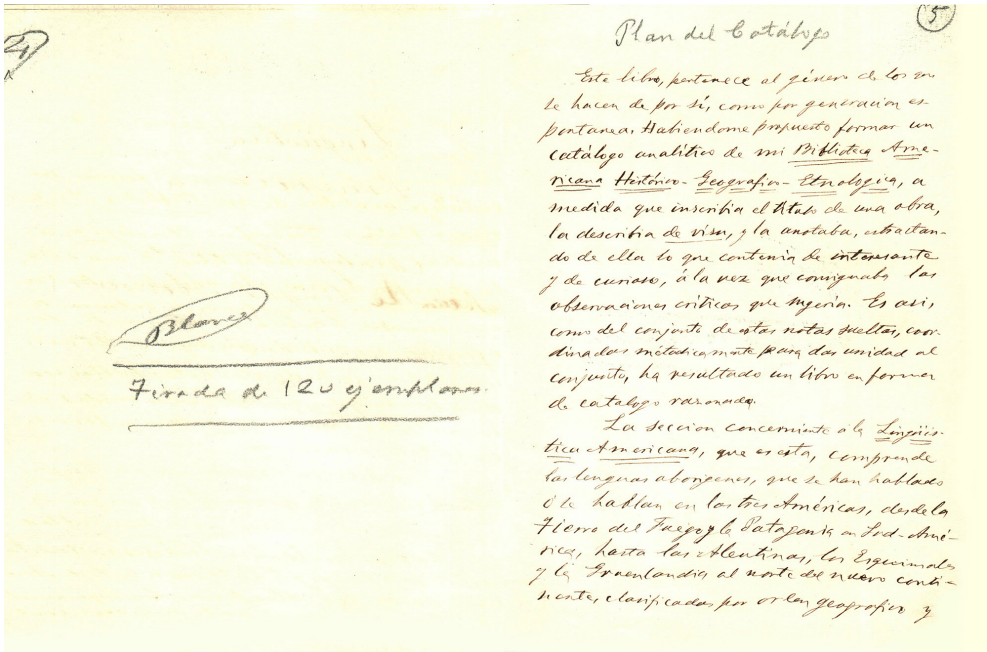 Blanco
Tirada de 120 ejemplares
5
Plan del Catálogo
Este libro, pertenece al género de los que
se hacen de por sí, como por generacion es-
pontanea. Habiendome propuesto formar un
catálogo analítico de mi Biblioteca Ame-
ricana Histórico-Geografico-Etnologica, a
medida que inscribia el titulo de una obra,
la describia de visu, y la anotaba, estractan-
do de ella lo que contenia de interesante
y de curioso, á la vez que consignaba las
observaciones criticas que sugeria. Es asi,
como del conjunto de estas notas sueltas, coor-
dinadas métodicamente para dar unidad al
conjunto, ha resultado un libro en forma
de catalogo razonado.
La seccion concerniente á la Lingüis-
tica Americana, que es esta, comprende
las lenguas aborigenes, que se han hablado
ó se hablan en las tres Américas, desde la
Tierra del Fuego y la Patagonia en Sud-Amé-
rica, hasta las Aleutinas, los Esquimales
y la Groenlandia al norte del nuevo conti-
nente, clasificadas por orden geografico y